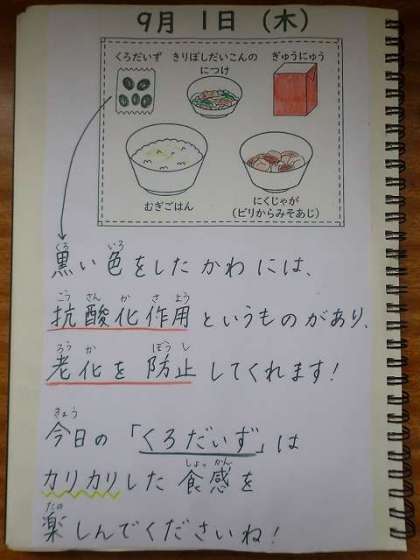 9月 1日 (木)
くろだいず きりぼしだいこんの ぎゅうにゅう
につけ
むぎごはん にくじゃが
(ピリからみそあじ)
くろ いろ
黒い色をしたかわには、
こう さん か さ よう
抗酸化作用というものがあり、
ろう か ぼう し
老化を防止してくれます!
きょう
今日の「くろだいず」は
しょっ かん
カリカリした食感を
たの
楽しんでくださいね!